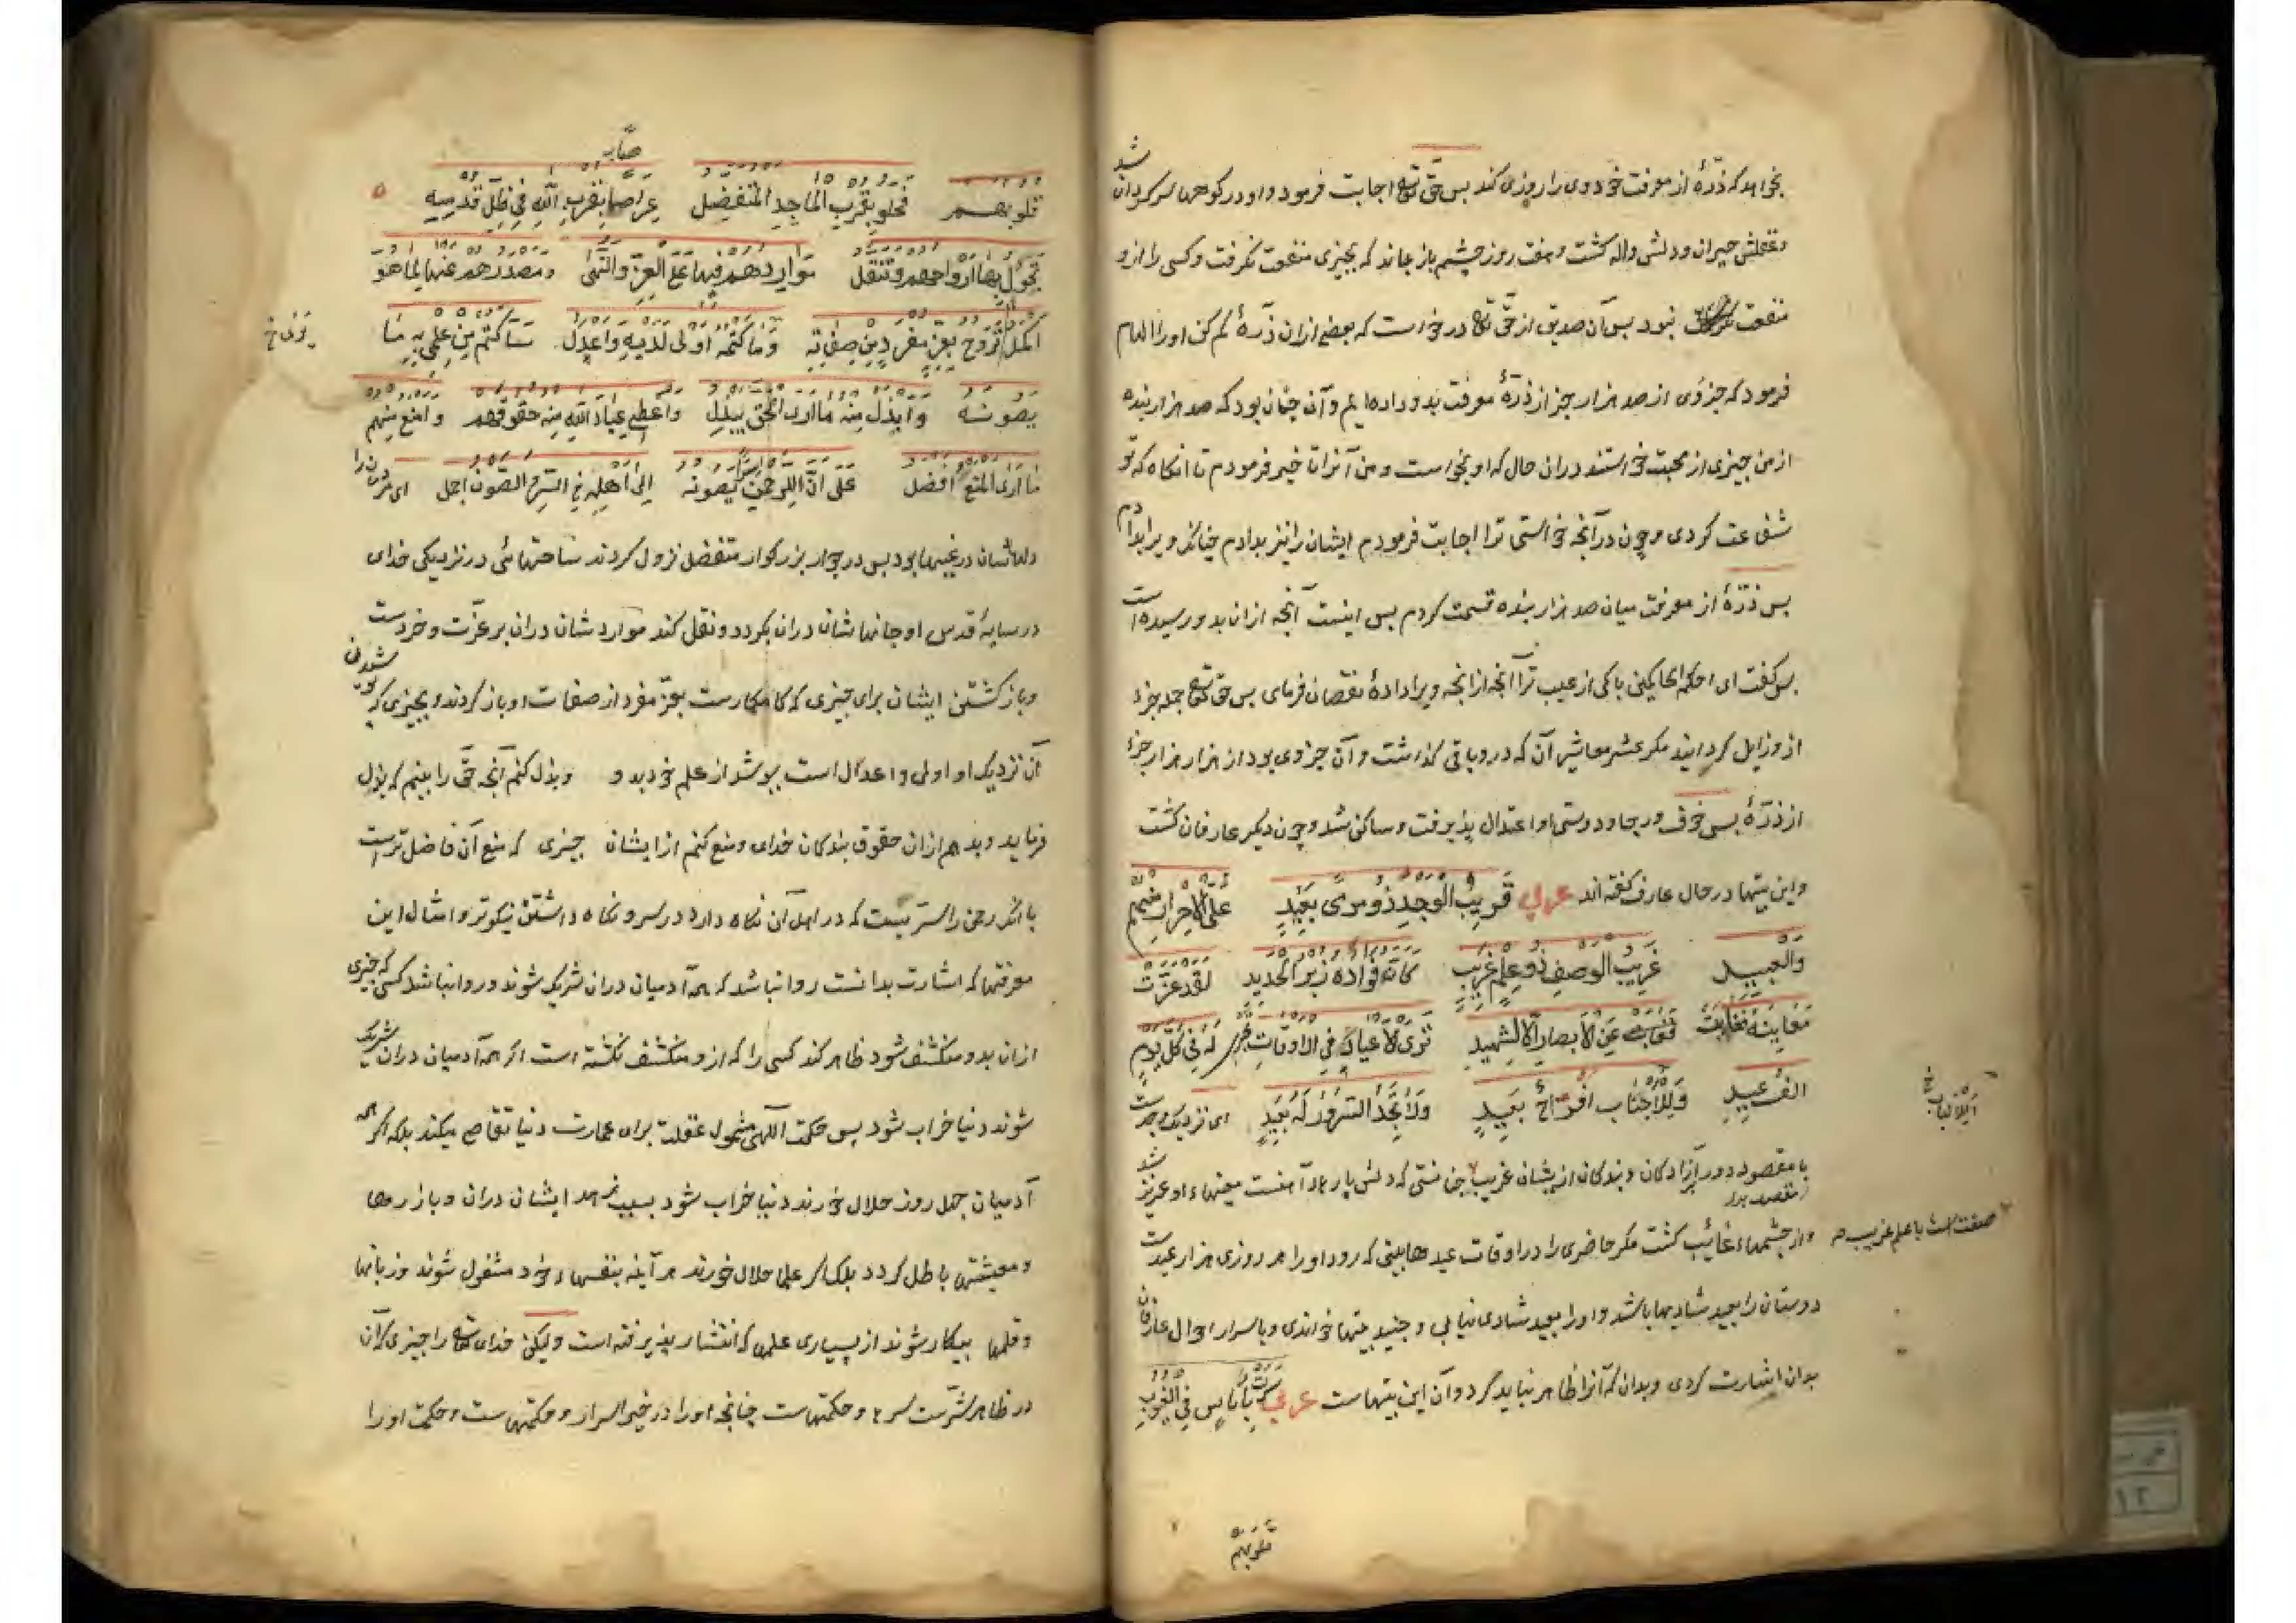 بخواهد که ذرّهٔ از معرفت خود وی را روزی کند بس حق تع اجابت فرمود و او در کوهها سرگردان شد
و عقلش حیران و دلش واله کشت و هفت روز چشم باز بماند که بچیزی منفعت نکرفت و کسی را از و
منفعت نبود بس آن صدیق از حق تع درخواست که بعضی ازان ذرّهٔ کم کن او را الهام
فرمود که جزوی از صد هزار جز از ذرّهٔ معرفت بدو داده ایم و آن چنان بود که صد هزار بنده
از من چیزی از محبت خواستند دران حال که او بخواست و من آنرا تاخیر فرمودم تا انکاه که تو
شفاعت کردی و چون در آنچه خواستی ترا اجابت فرمودم ایشان را نیز بدادم چنانکه ویرا بدادم
بس ذرّهٔ از معرفت میان صد هزار بنده قسمت کردم بس اینست آنچه ازان بدو رسیده است
بس کفت ای احکم الحاکمین پاکی از عیب ترا آنچه از انچه ویرا دادهٔ نقصان فرمای بس حق تع جمله جزء
ازو زایل کردانید مکر عشر معاشر آن که درو باقی کذاشت و آن جزوی بود از هزار هزار جزء
از ذرّهٔ بس خوف و رجا و دوستی او اعتدال پذیرفت و ساکن شد و چون دیکر عارفان کشت
و این بیتها در حال عارف کفته اند عربی قریب الوجد ذو مرمی بعید علی الاحرار منهم
والعبید غریب الوصف ذو علم غریب کان فواده زبر الحدید لقد عزّت
معاینه فغابت عن الابصار الا للشهید تری الاعیاد فی الاوقات تجری له فی کل یوم
الف عید وللاحباب افراح بعید ولا یجد السرور له بعید ای نزدیک وجدست
با مقصود دور آزادکان و بندکان از یشان غریب چنانستی که دلش پارهاء آهنست معنیهاء او عزیز شد
صفت است با علم غریب صح
و از چشمها غائب کشت مکر حاضری را در اوقات عیدها بینی که رود او را هر روزی هزار عیدست
دوستان را بعید شادیها باشد و او را بعید شادی نیابی و جنید بیتها خواندی و باسرار احوال عارفان
بدان اشارت کردی و بدان که آنرا ظاهر نباید کرد و آن این بیتهاست عربی سرت باناس فی الغیوب
قلوبهم
قلوبهم فحلو بقرب الماجد المتفضل عراصا بقرب الله فی ظل قدسه
تجول بها ارواحهم وتنقل مواردهم فیها علی العز والنهی ومصدرهم عنها لما هو
اکمل تروح بعز مفرد من صفاته وما کتمه اولی لدیه واعدل ساکتم من علمی به ما
یصونه وابذل منه ما اری الحق یبذل واعطی عباد الله منه حقوقهم وامنع منهم
ما اری المنع افضل علی ان للرحمن سرا یصونه الی اهله فی السر والصون اجمل ای مردمان را
دلهاشان در غیبها بود بس در جوار بزرکوار متفضل نزول کردند ساحتهائی در نزدیکی خدای
در سایهٔ قدس او جانهاشان دران بکردد و نقل کند مواردشان دران بر عزت و خردست
و باز کشتن ایشان برای چیزی که کاملترست بعز مفرد از صفات او باز کردند و بچیزی که
آن نزدیک او اولی و اعدل است بپوشد از علم خود بدو و بذل کنم آنچه حق را بینم که بذل
فرماید و بدهم ازان حقوق بندکان خدای و منع کنم از ایشان چیزی که منع آن فاضل ترست
با آنکه رحمن را سرّیست که در اهل آن نکاه دارد در سر و نکاه داشتن نیکوتر و امثال این
معرفتها که اشارت بدانست روا نباشد که همه آدمیان دران شریک شوند و روا نباشد کسی که چیزی
ازان بدو منکشف شود ظاهر کند کسی را که ازو منکشف نکشته است اکر همه آدمیان دران شریک
شوند دنیا خراب شود بس حکمت الهی شمول غفلت برای عمارت دنیا تقاضا میکند بلکه اکر همه
آدمیان چهل روز حلال خورند دنیا خراب شود بسبب زهد ایشان دران و بازارها
و معیشتها باطل کردد بلک اکر علما حلال خورند هر آینه بنفسهاء خود مشغول شوند و زبانها
و قلمها بیکار شوند از بسیاری علمها که انتشار پذیرفته است ولیکن خدای تع را چیزی که آن
در ظاهر شرّست سرها و حکمتهاست چنانچه او را در خیر اسرار و حکمتهاست و حکمت او را